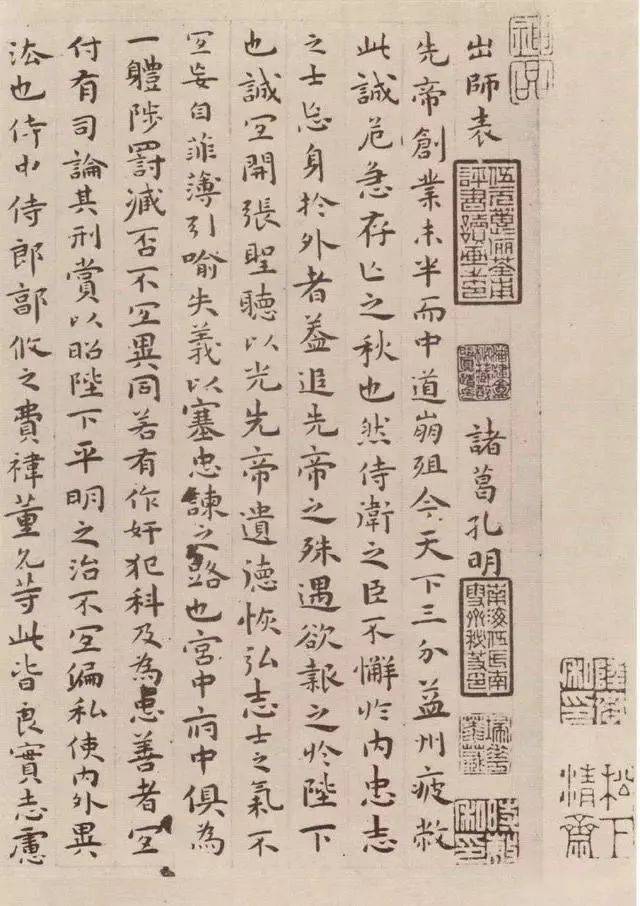 松下清齋
出師表 諸葛孔明
先帝創業未半而中道崩殂今天下三分益州疲敝
此誠危急存亡之秋也然侍衛之臣不懈於内忠志
之士忘身於外者蓋追先帝之殊遇欲報之於陛下
也誠宜開張聖聽以光先帝遺德恢弘志士之氣不
宜妄自菲薄引喻失義以塞忠諫之路也宮中府中俱為
一體陟罰臧否不宜異同若有作奸犯科及為忠善者宜
付有司論其刑賞以昭陛下平明之治不宜偏私使内外異
法也侍中侍郎郭攸之費禕董允等此皆良實志慮